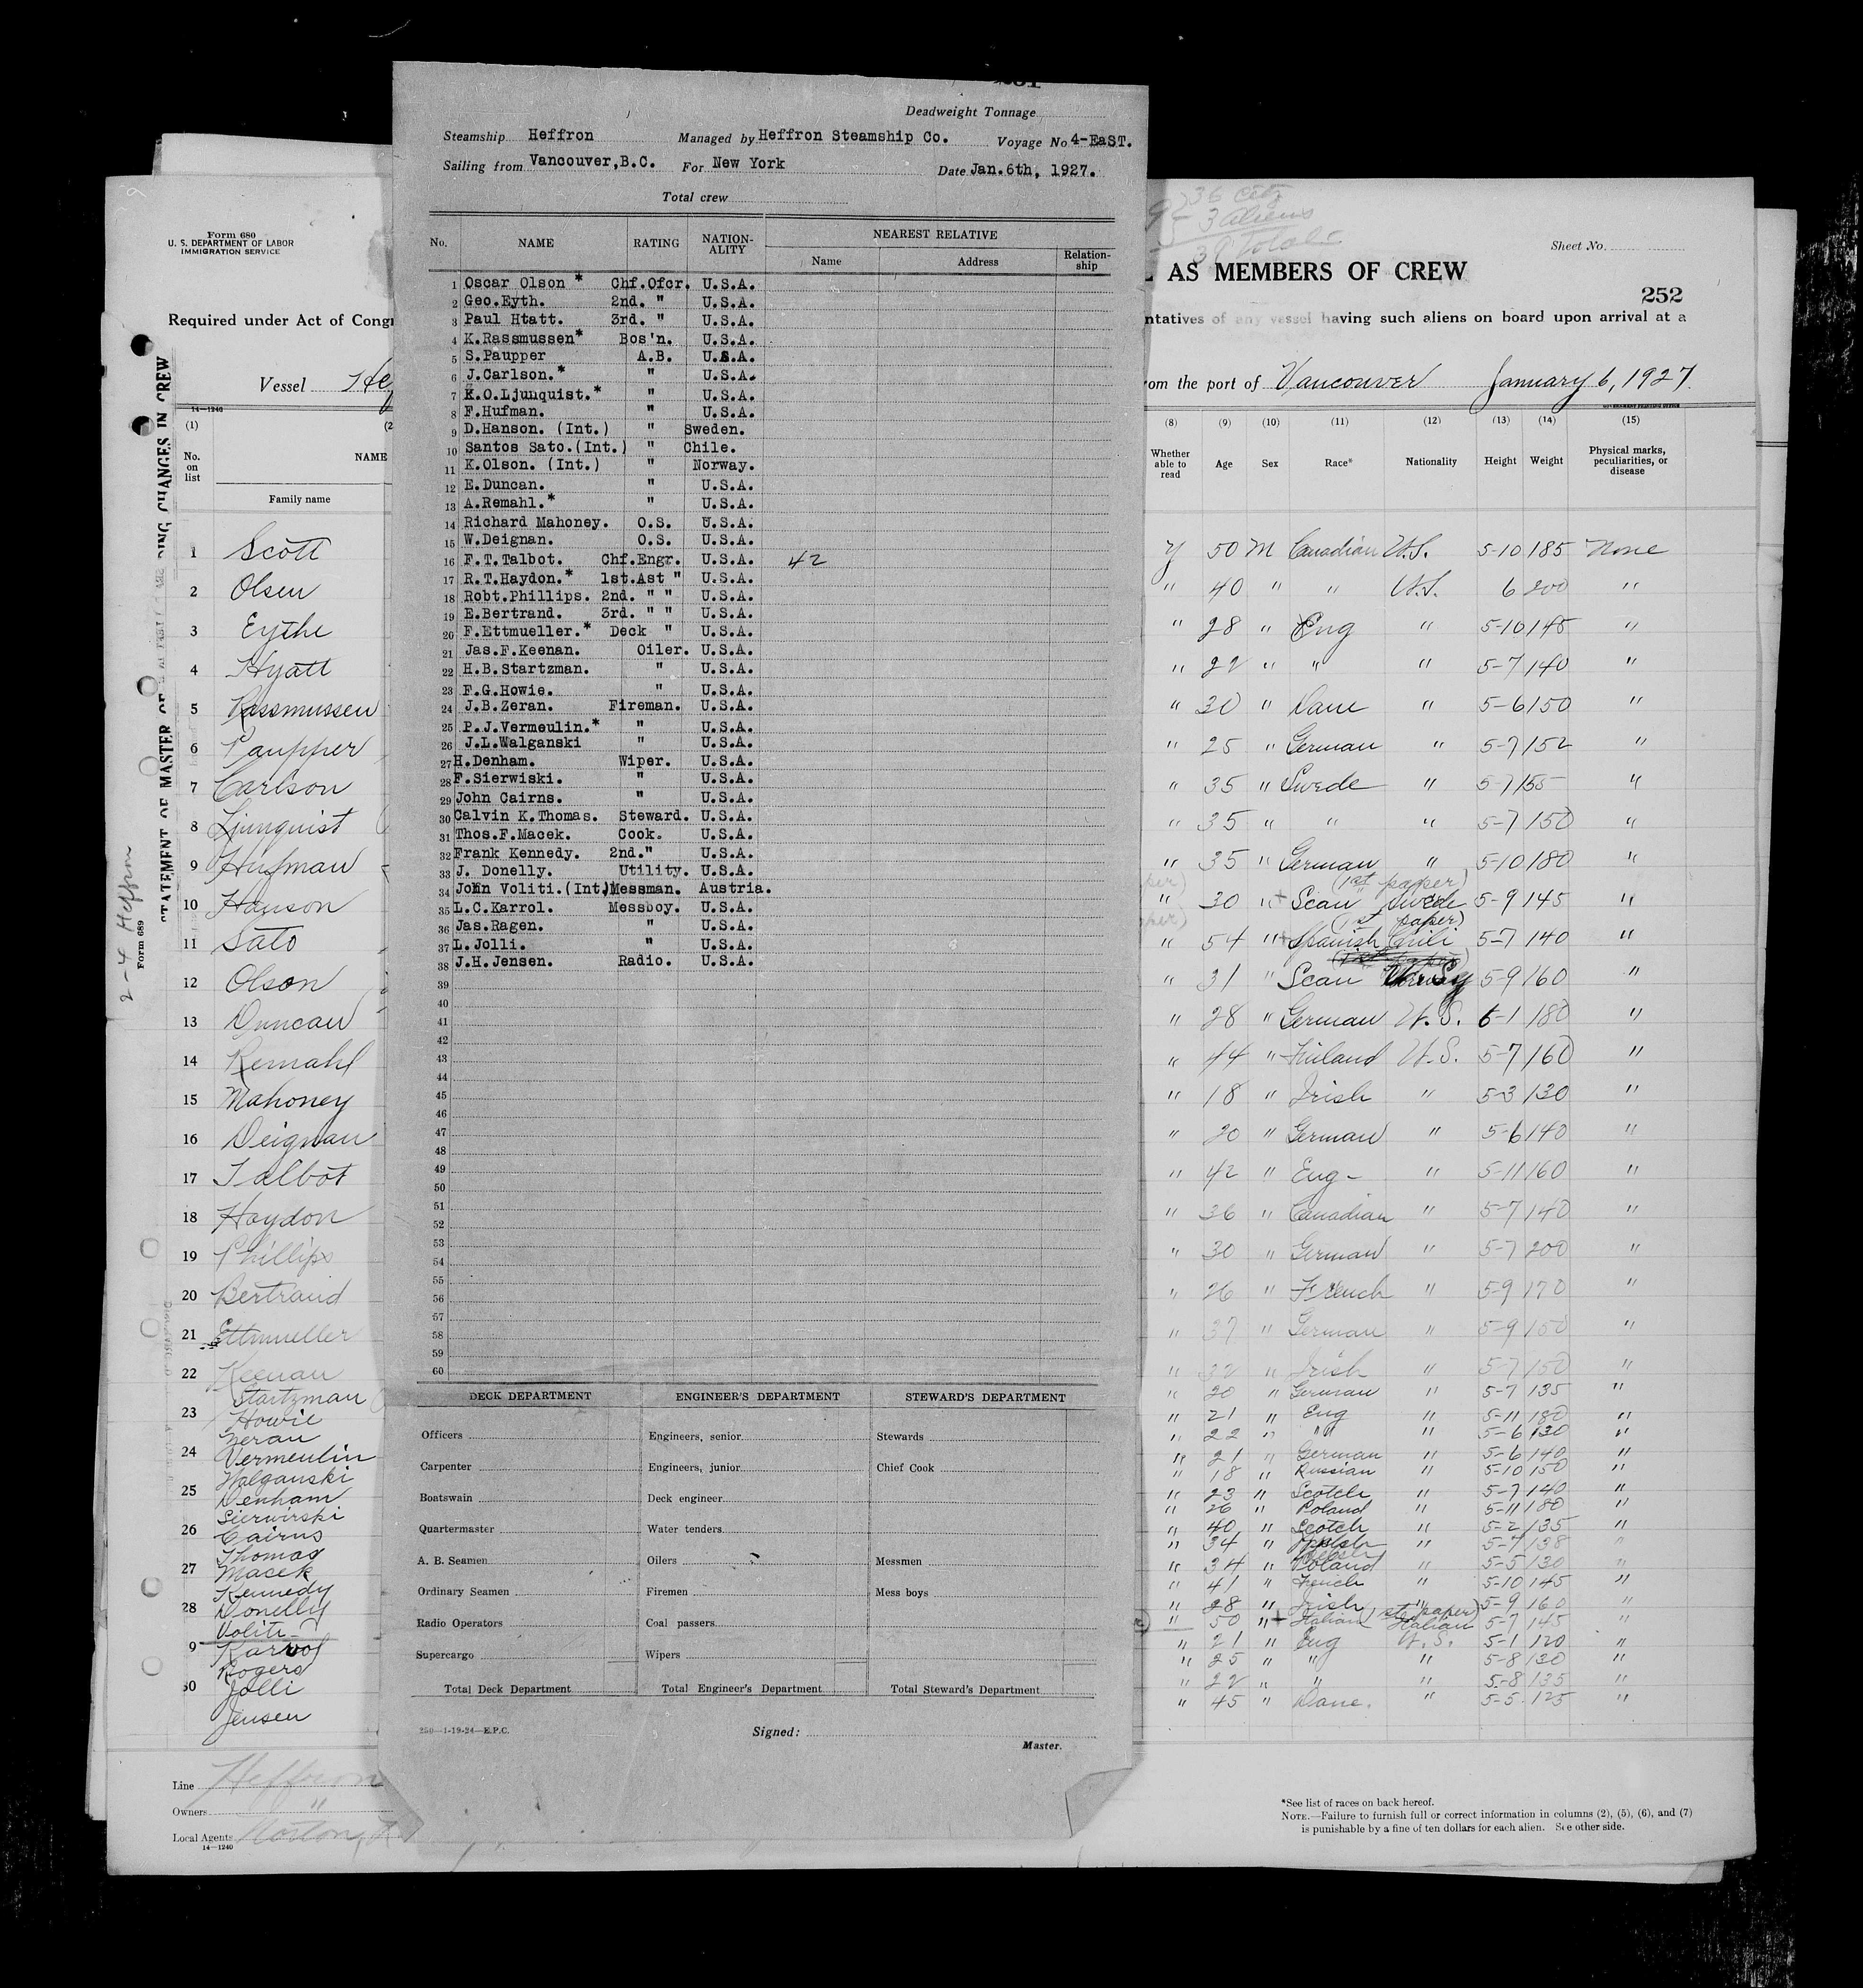 Deadweight Tonnage
Steamship Heffron Managed by Heffron Steamship Co. Voyage No 4-EaST.
Sailing from Vancouver,B.C. For New York Date Jan.6th, 1927.
Total crew
No. NAME RATING NATION-ALITY NEAREST RELATIVE
Name Address Relation-ship
1 Oscar Olson * Chf.Ofcr. U.S.A.
2 Geo.Eyth. 2nd. " U.S.A.
3 Paul Htatt. 3rd. " U.S.A.
4 K.Rassmussen* Bos'n. U.S.A.
5 S.Paupper A.B. U.S.A.
6 J.Carlson.* " U.S.A.
7 K.O.Ljunquist.* " U.S.A.
8 F.Hufman. " U.S.A.
9 D.Hanson. (Int.) " Sweden.
10 Santos Sato.(Int.) " Chile.
11 K.Olson. (Int.) " Norway.
12 E.Duncan. " U.S.A.
13 A.Remahl.* " U.S.A.
14 Richard Mahoney. O.S. U.S.A.
15 W.Deignan. O.S. U.S.A.
16 F.T.Talbot. Chf.Engr. U.S.A. 42
17 R.T.Haydon.* 1st.Ast " U.S.A.
18 Robt.Phillips. 2nd. " " U.S.A.
19 E.Bertrand. 3rd. " " U.S.A.
20 F.Ettmueller.* Deck " U.S.A.
21 Jas.F.Keenan. Oiler. U.S.A.
22 H.B.Startzman. " U.S.A.
23 F.G.Howie. " U.S.A.
24 J.B.Zeran. Fireman. U.S.A.
25 P.J.Vermeulin.* " U.S.A.
26 J.L.Walganski " U.S.A.
27 H.Denham. Wiper. U.S.A.
28 F.Sierwiski. " U.S.A.
29 John Cairns. " U.S.A.
30 Calvin K.Thomas. Steward. U.S.A.
31 Thos.F.Macek. Cook. U.S.A.
32 Frank Kennedy. 2nd." U.S.A.
33 J. Donelly. Utility. U.S.A.
34 John Voliti.(Int.)Messman. Austria.
35 L.C.Karrol. Messboy. U.S.A.
36 Jas.Ragen. " U.S.A.
37 L.Jolli. " U.S.A.
38 J.H.Jensen. Radio. U.S.A.
39
40
41
42
43
44
45
46
47
48
49
50
51
52
53
54
55
56
57
58
59
60
DECK DEPARTMENT ENGINEER'S DEPARTMENT STEWARD'S DEPARTMENT
Officers Engineers, senior Stewards
Carpenter Engineers, junior Chief Cook
Boatswain Deck engineer
Quartermaster Water tenders
A. B. Seamen Oilers Messmen
Ordinary Seamen Firemen Mess boys
Radio Operators Coal passers
Supercargo Wipers
Total Deck Department Total Engineer's Department Total Steward's Department
250—1-19-24—E.P.C. Signed:
Master.
Form 680
U. S. DEPARTMENT OF LABOR
IMMIGRATION SERVICE
Required under Act of Cong
Vessel Hef
14—1240
(1) (2
No. on list NAME
Family name
1 Scott
2 Olsen
3 Eythe
4 Hyatt
5 Rassmussen
6 Paupper
7 Carlson
8 Ljunquist
9 Hufman
10 Hanson
11 Sato
12 Olson
13 Duncan
14 Remahl
15 Mahoney
16 Deignan
17 Talbot
18 Haydon
19 Phillips
20 Bertrand
21 Ettmueller
22 Keenan
Startzman
23 Howie
Zeran
24 Vermeulin
Walganski
25 Denham
Sierwirski
26 Cairns
Thomas
27 Macek
Kennedy
28 Donelly
Voliti
9 Karrol
Rogers
30 Jolli
Jensen
Line Heffron
Owners "
Local Agents Norton,
14—1240
STATEMENT OF MASTER OF
ING CHANGES IN CREW
2-4 Heffron
Form 689
36 City
3 aliens
39 total
Sheet No.
AS MEMBERS OF CREW
252
ntatives of any vessel having such aliens on board upon arrival at a
om the port of Vancouver January 6, 1927
GOVERNMENT PRINTING OFFICE
(8) (9) (10) (11) (12) (13) (14) (15)
Whether able to read Age Sex Race* Nationality Height Weight Physical marks, peculiarities, or disease
y 50 M Canadian U.S. 5-10 185 None
" 40 " " U.S. 6 200 "
" 28 " Eng " 5-10 145 "
" 22 " " " 5-7 140 "
" 30 " Dane " 5-6 150 "
" 25 " German " 5-7 152 "
" 35 " Swede " 5-7 155 "
" 35 " " " 5-7 150 "
" 35 " German " 5-10 180 "
(1st paper)
" 30 " Scan Swede 5-9 145 "
(1st paper)
" 54 " Spanish Chili 5-7 140 "
" 31 " Scan 5-9 160 "
" 28 " German U.S. 6-1 180 "
" 44 " Finland U.S. 5-7 160 "
" 18 " Irish " 5-3 130 "
" 20 " German " 5-6 140 "
" 42 " Eng - " 5-11 160 "
" 36 " Canadian " 5-7 140 "
" 30 " German " 5-7 200 "
" 26 " French " 5-9 170 "
" 37 " German " 5-9 150 "
" 32 " Irish " 5-7 150 "
" 20 " German " 5-7 135 "
" 21 " Eng " 5-11 180 "
" 22 " " " 5-6 130 "
" 21 " German " 5-6 140 "
" 18 " Russian " 5-10 150 "
" 23 " Scotch " 5-7 140 "
" 26 " Poland " 5-11 180 "
" 40 " Scotch " 5-2 135 "
" 34 " " 5-7 138 "
" 34 " Poland " 5-5 130 "
" 41 " French " 5-10 145 "
" 28 " Irish " 5-9 160 "
" 50 " Italian (1st paper) Italian 5-7 145 "
" 21 " Eng U.S. 5-1 120 "
" 25 " " " 5-8 130 "
" 22 " " " 5-8 135 "
" 45 " Dane. " 5-5 125 "
*See list of races on back hereof.
NOTE.—Failure to furnish full or correct information in columns (2), (5), (6), and (7)
is punishable by a fine of ten dollars for each alien. See other side.